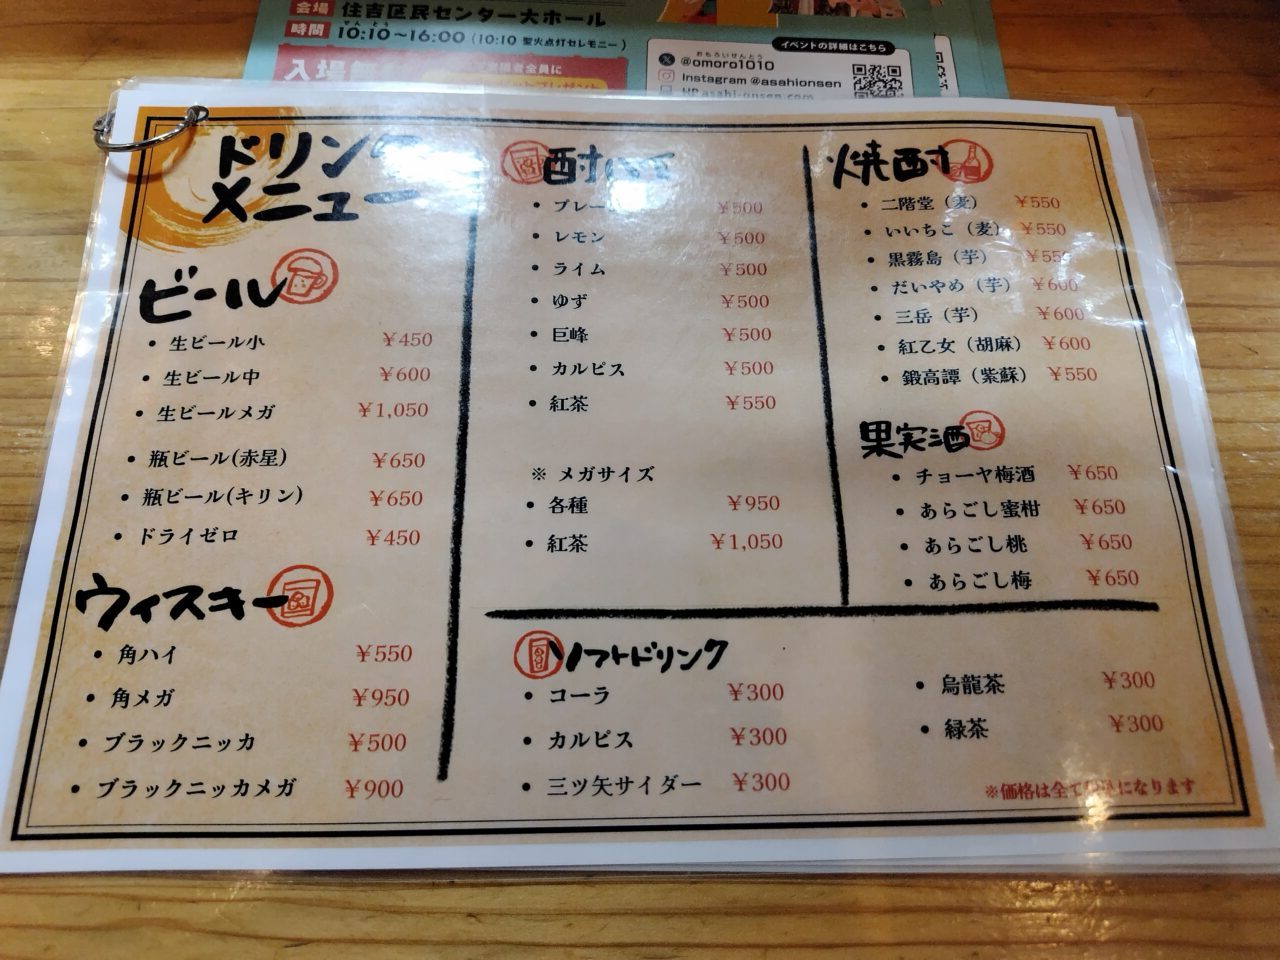 会場 住吉区民センター大ホール
時間 10:10～16:00 (10:10 聖火点灯セレモニー)
入場無
全員に
イベントの詳細はこちら
おもろいせんとう
@omoro1010
Instagram @asahionsen
HP asahi-onsen.com
ドリンク
メニュー
ビール
• 生ビール小 ¥450
• 生ビール中 ¥600
• 生ビールメガ ¥1,050
• 瓶ビール(赤星) ¥650
• 瓶ビール(キリン) ¥650
• ドライゼロ ¥450
ウィスキー
• 角ハイ ¥550
• 角メガ ¥950
• ブラックニッカ ¥500
• ブラックニッカメガ ¥900
酎ハイ
• プレーン ¥500
• レモン ¥500
• ライム ¥500
• ゆず ¥500
• 巨峰 ¥500
• カルピス ¥500
• 紅茶 ¥550
※ メガサイズ
• 各種 ¥950
• 紅茶 ¥1,050
焼酎
• 二階堂（麦） ¥550
• いいちこ（麦） ¥550
• 黒霧島（芋） ¥550
• だいやめ（芋） ¥600
• 三岳（芋） ¥600
• 紅乙女（胡麻） ¥600
• 鍛高譚（紫蘇） ¥550
果実酒
• チョーヤ梅酒 ¥650
• あらごし蜜柑 ¥650
• あらごし桃 ¥650
• あらごし梅 ¥650
ソフトドリンク
• コーラ ¥300
• カルピス ¥300
• 三ツ矢サイダー ¥300
• 烏龍茶 ¥300
• 緑茶 ¥300
※価格は全て税込になります